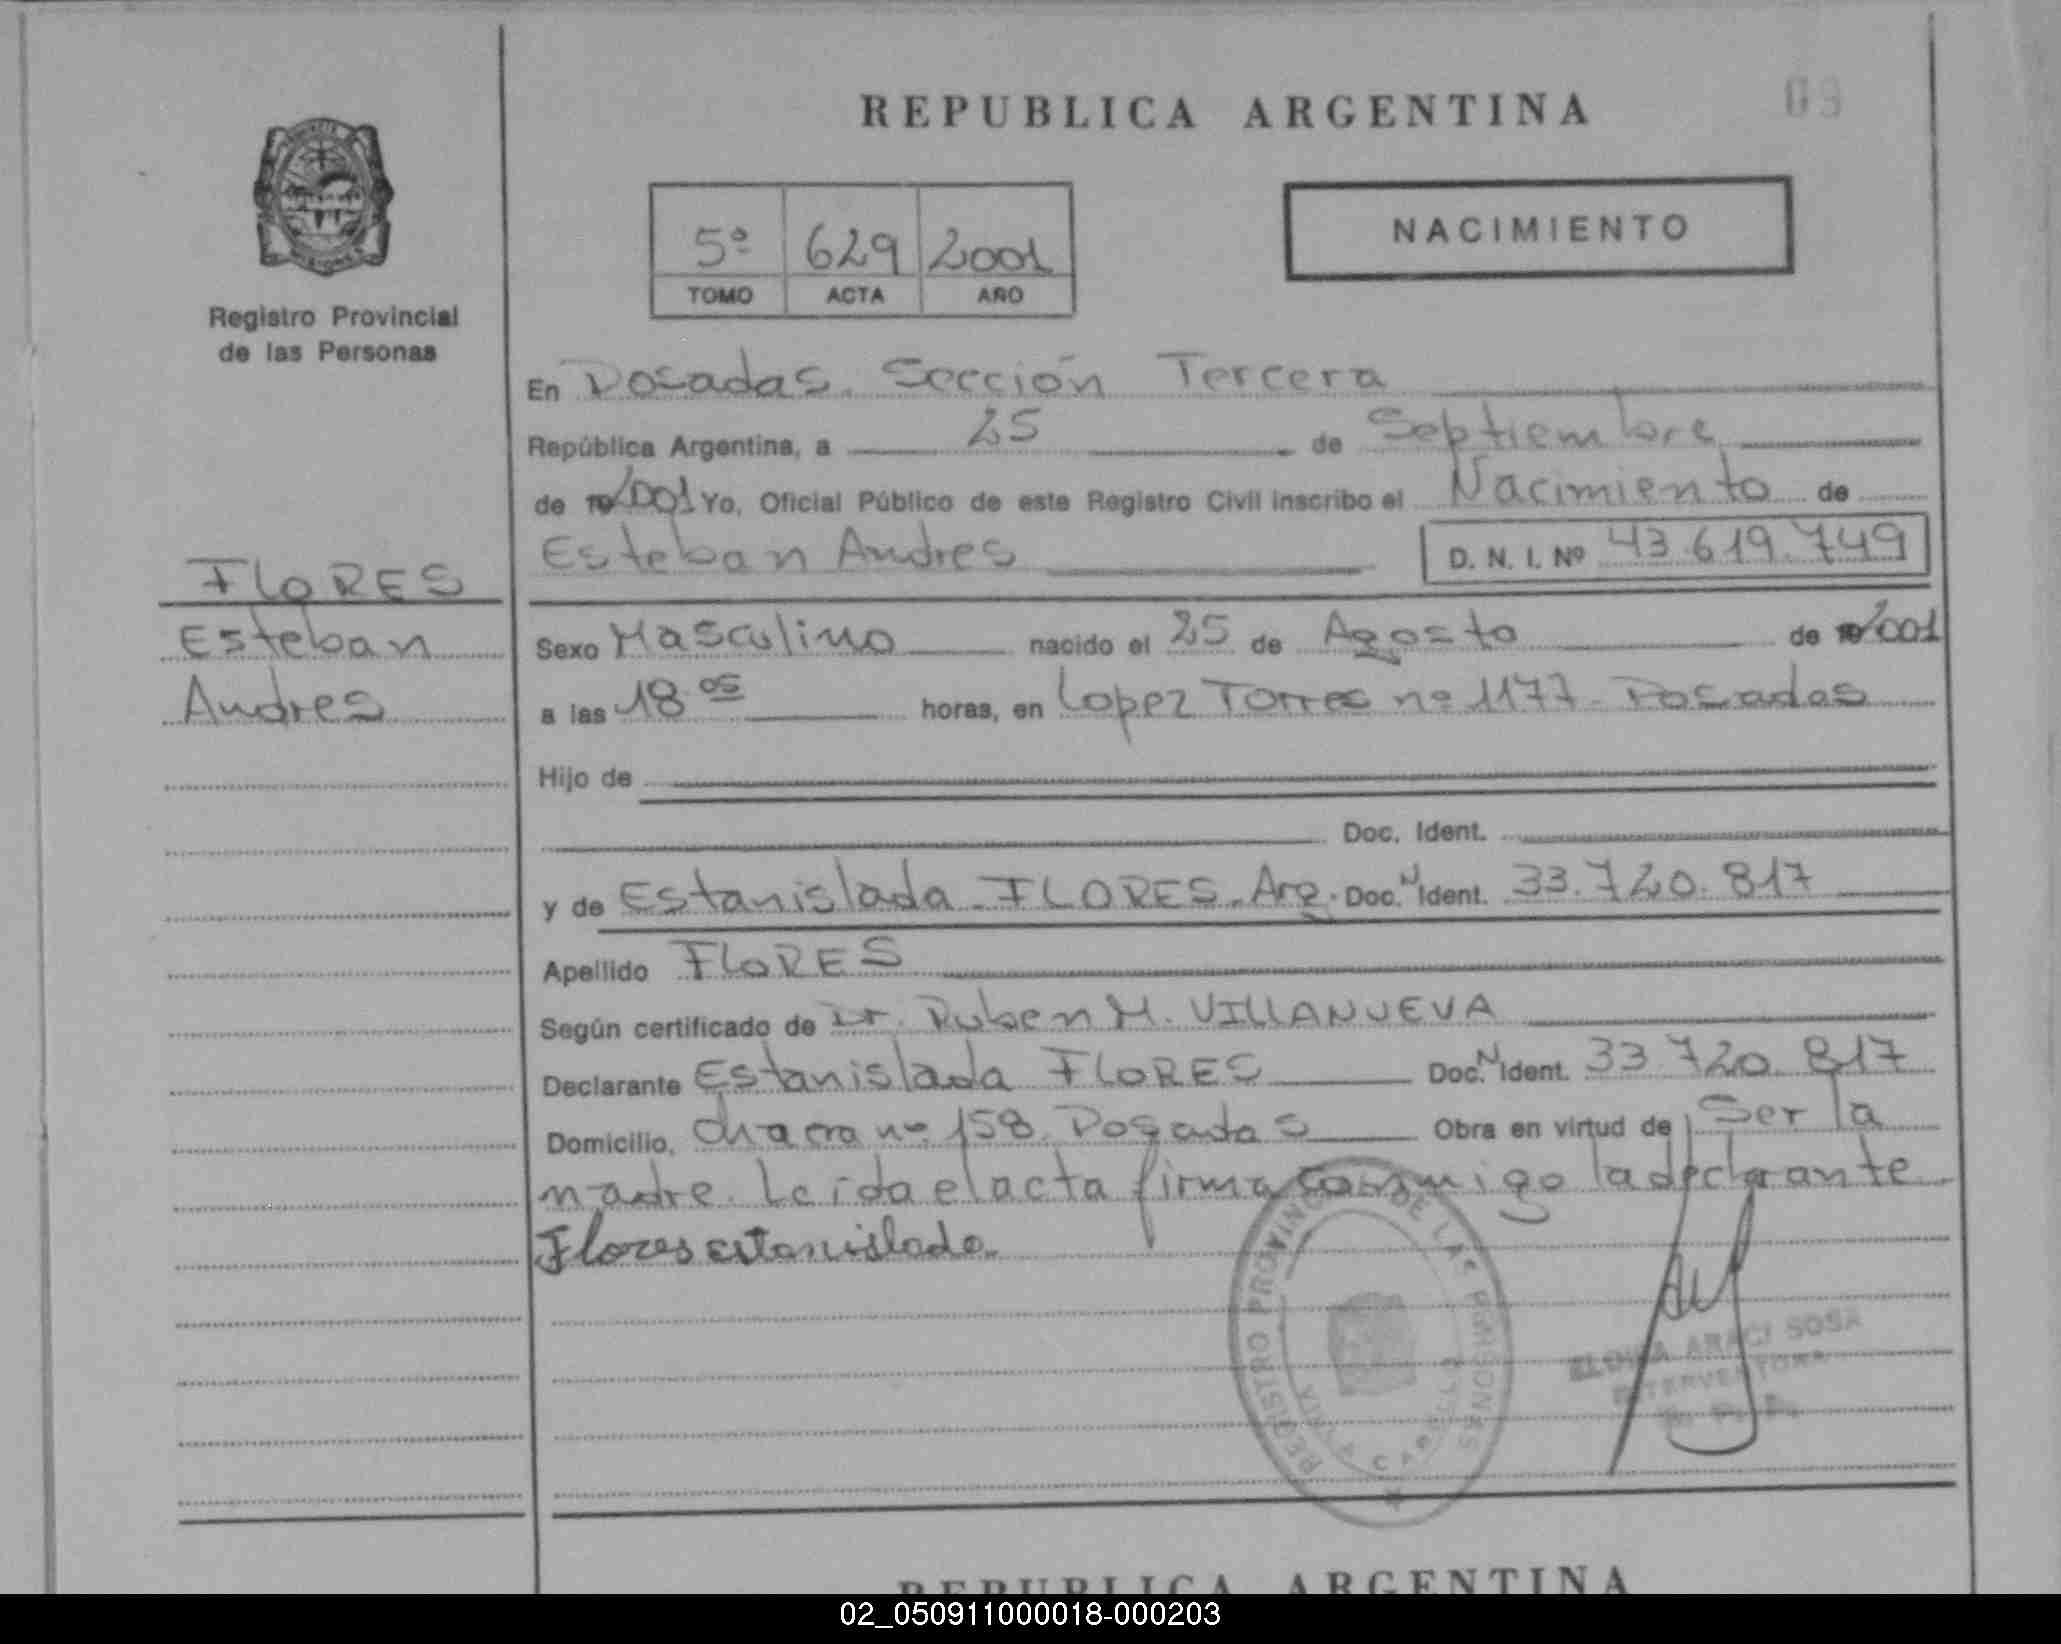 REPUBLICA ARGENTINA
09
NACIMIENTO
5º 629 2001
TOMO ACTA AÑO
Registro Provincial
de las Personas
En Posadas. Sección Tercera
República Argentina, a 25 de Septiembre
de 2001 Yo, Oficial Público de este Registro Civil inscribo el Nacimiento de
Esteban Andres D. N. I. Nº 43.619.749
FLORES
Esteban
Andres
Sexo Masculino nacido el 25 de Agosto de 2001
a las 18 05 horas, en Lopez Torres nº 1177. Posadas
Hijo de
Doc. Ident.
y de Estanislada FLORES. Arg. Doc. N Ident. 33.720.817
Apellido FLORES
Según certificado de Dr. Ruben M. VILLANUEVA
Declarante Estanislada FLORES Doc. N Ident. 33.720.817
Domicilio, Chacra nº 158. Posadas Obra en virtud de Ser la
madre. Leida el acta firma conmigo la declarante
Flores estanislada.
REGISTRO PROVINCIAL DE LAS PERSONAS
VILLA CABELLO
ARACI SOSA
INTERVENTORA
R. P. P.
REPUBLICA ARGENTINA
02_050911000018-000203